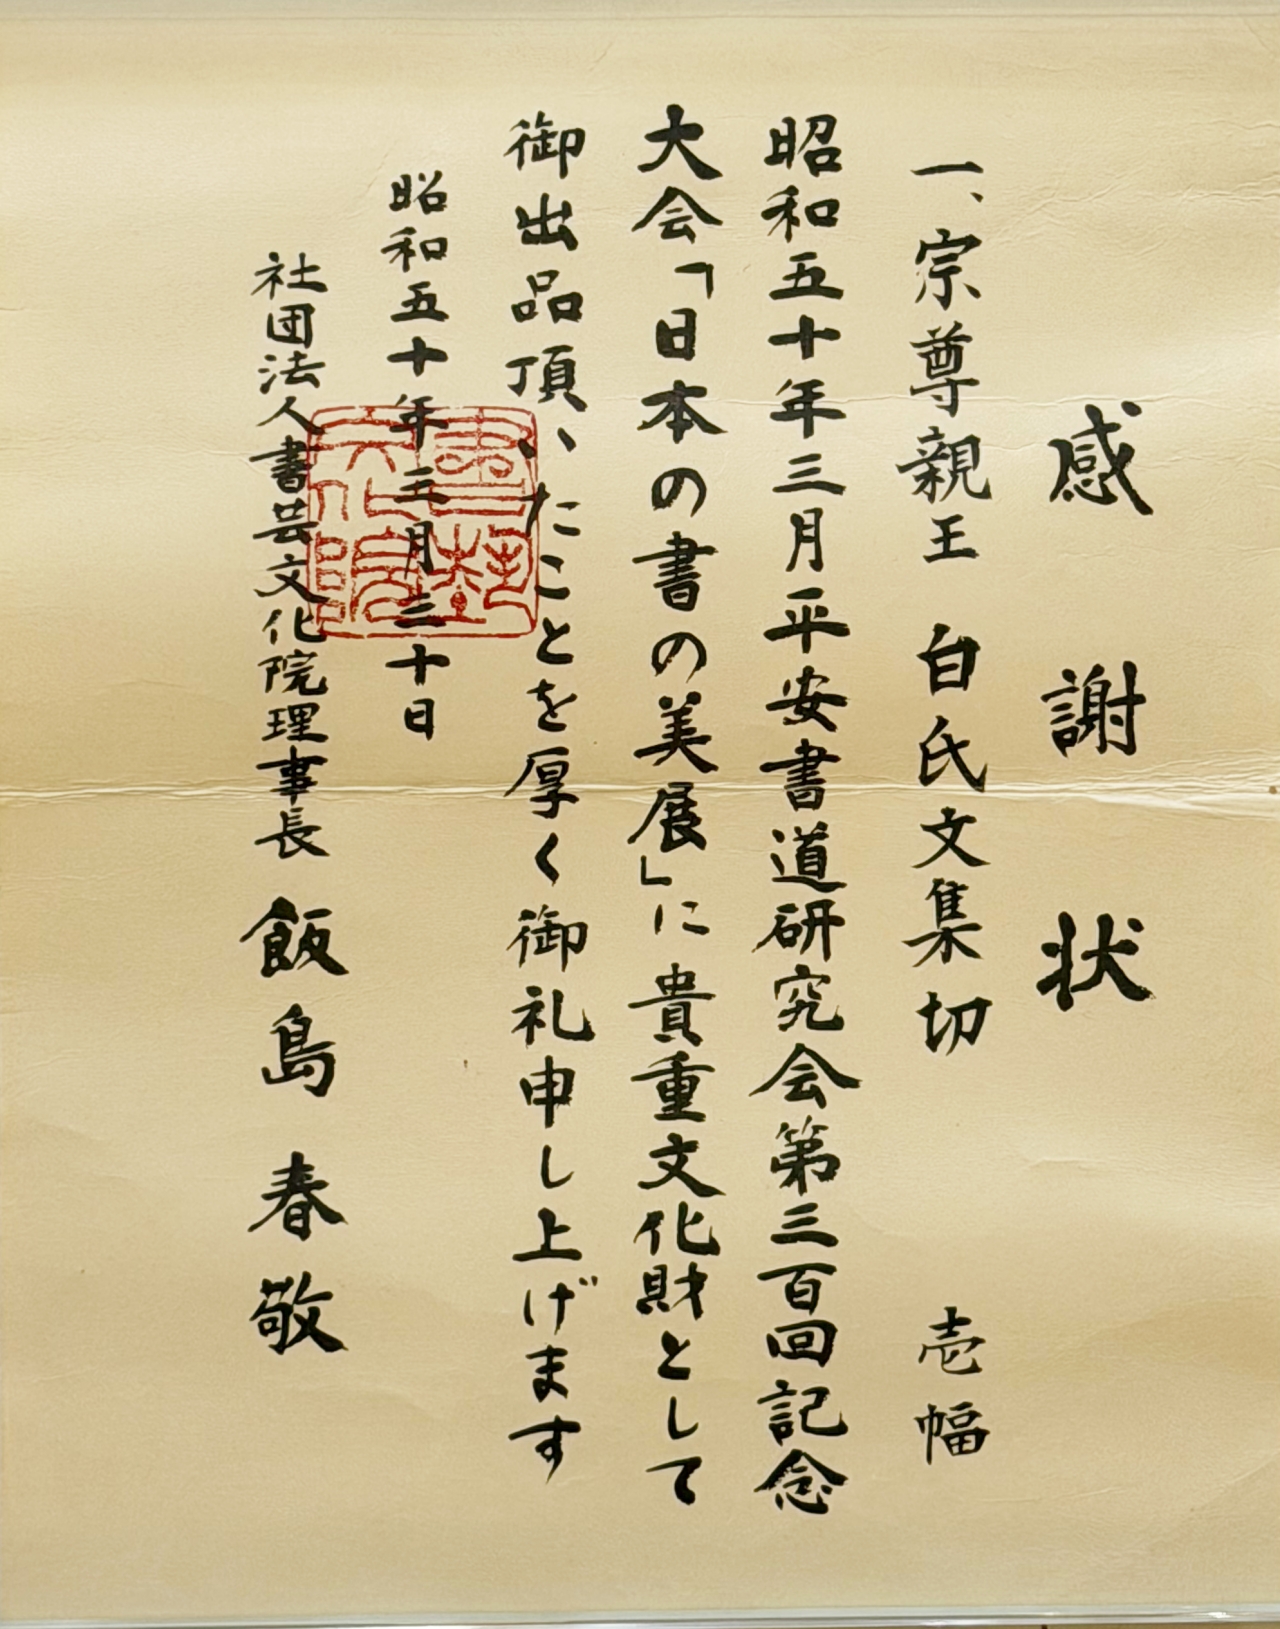 感謝状
一、宗尊親王 白氏文集切 壱幅
昭和五十年三月平安書道研究会第三百回記念
大会「日本の書の美展」に貴重文化財として
御出品頂いたことを厚く御礼申し上げます
昭和五十年三月三十日
社団法人書芸文化院理事長 飯島春敬
書芸文化院